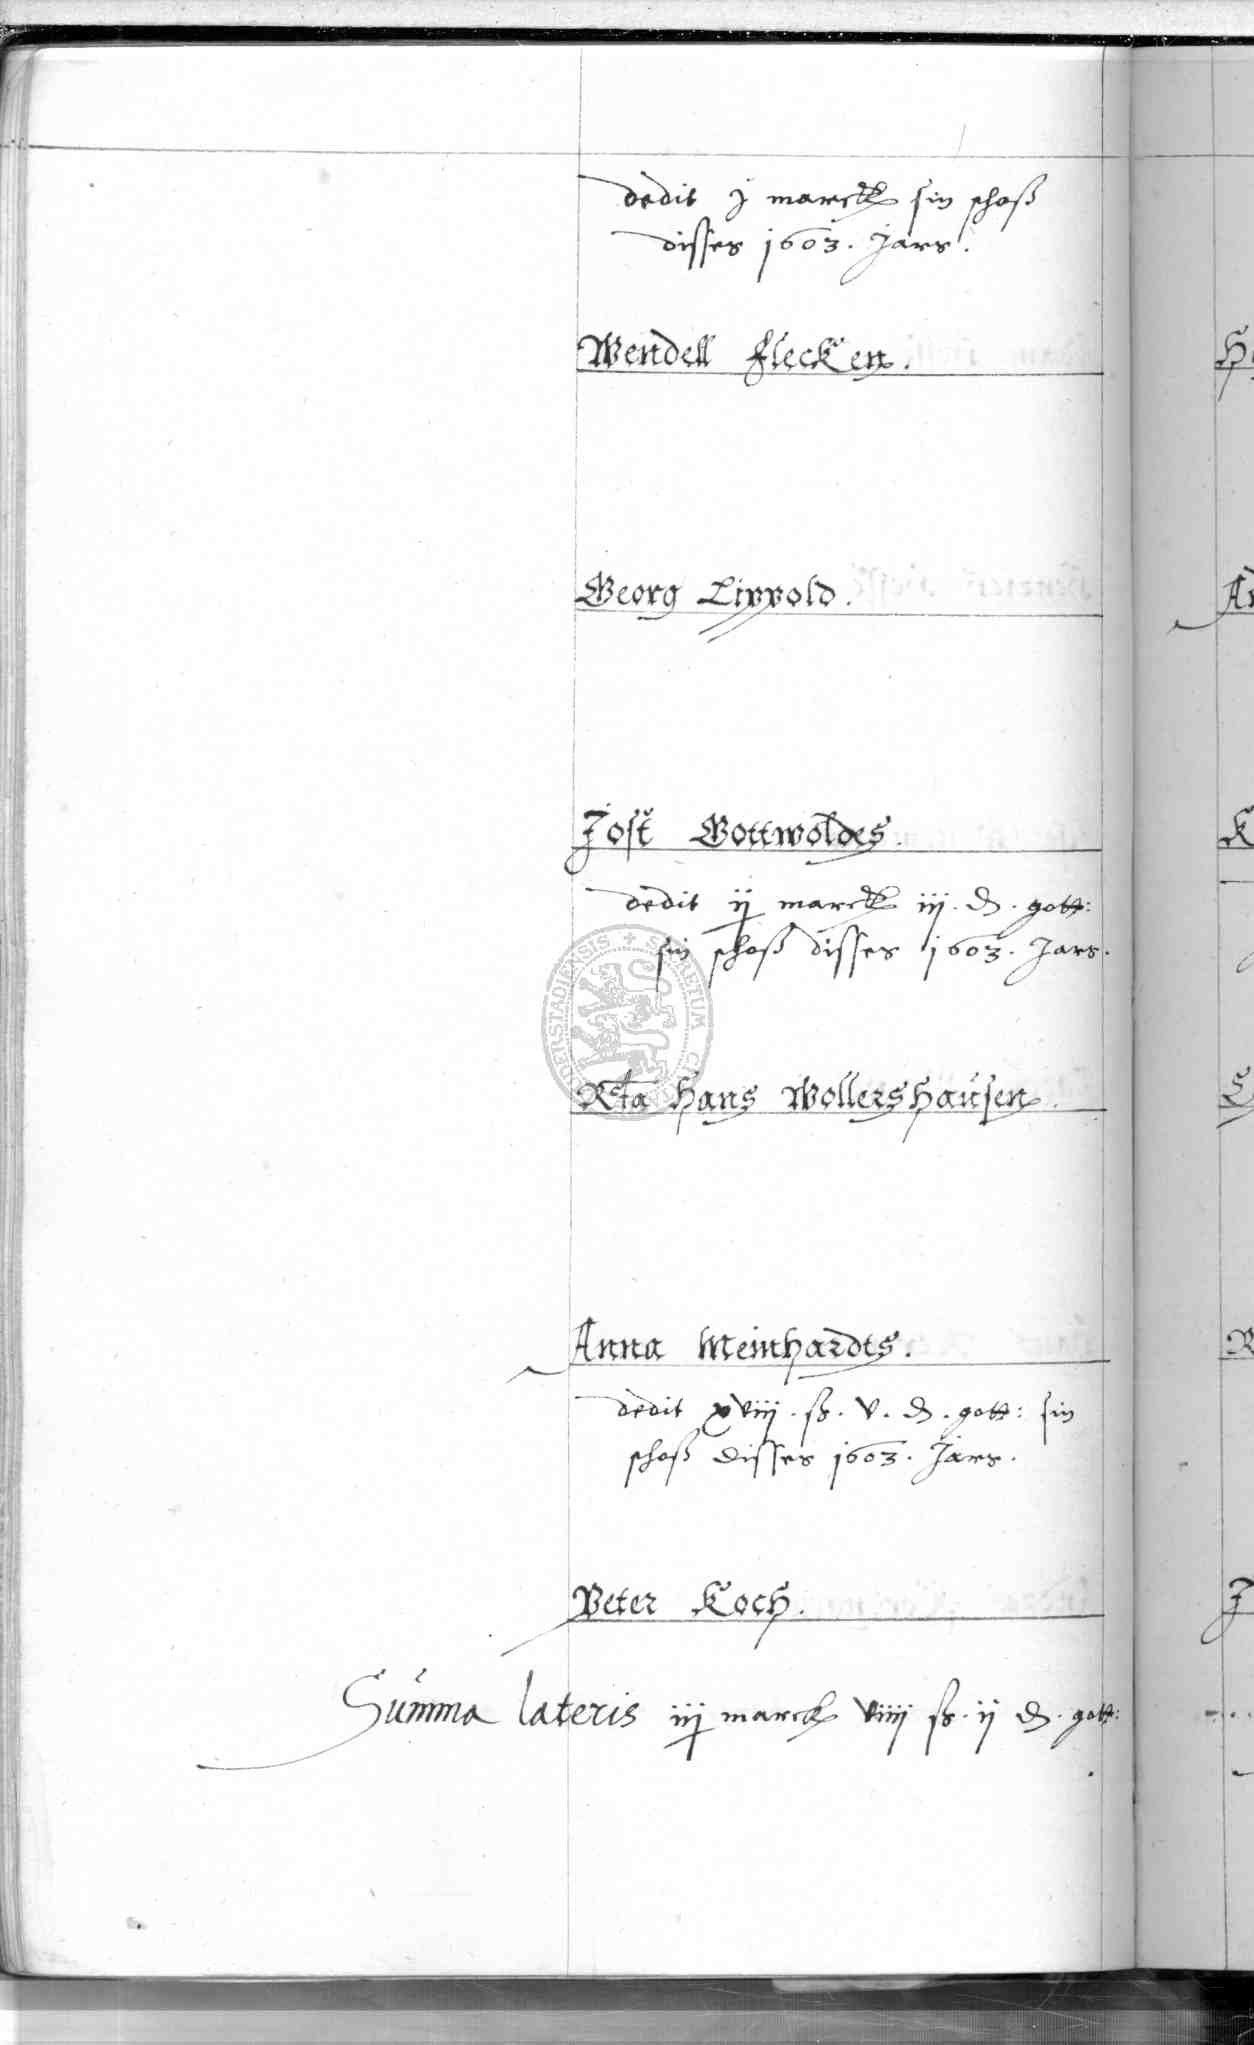 dedit j marck sin schoß
disses 1603. Jars.
Wendell Flecken.
Georg Lippold.
Jost Gottwoldes.
dedit ij marck iij. d. gott:
sin schoß disses 1603. Jars.
Rcta Hans Wollershausen.
Anna Meinhardts.
dedit xviij. ß. v. d. gott: sin
schoß disses 1603. Jars.
Peter Koch.
Summa lateris iij marck viiij ß. ij d. gott: